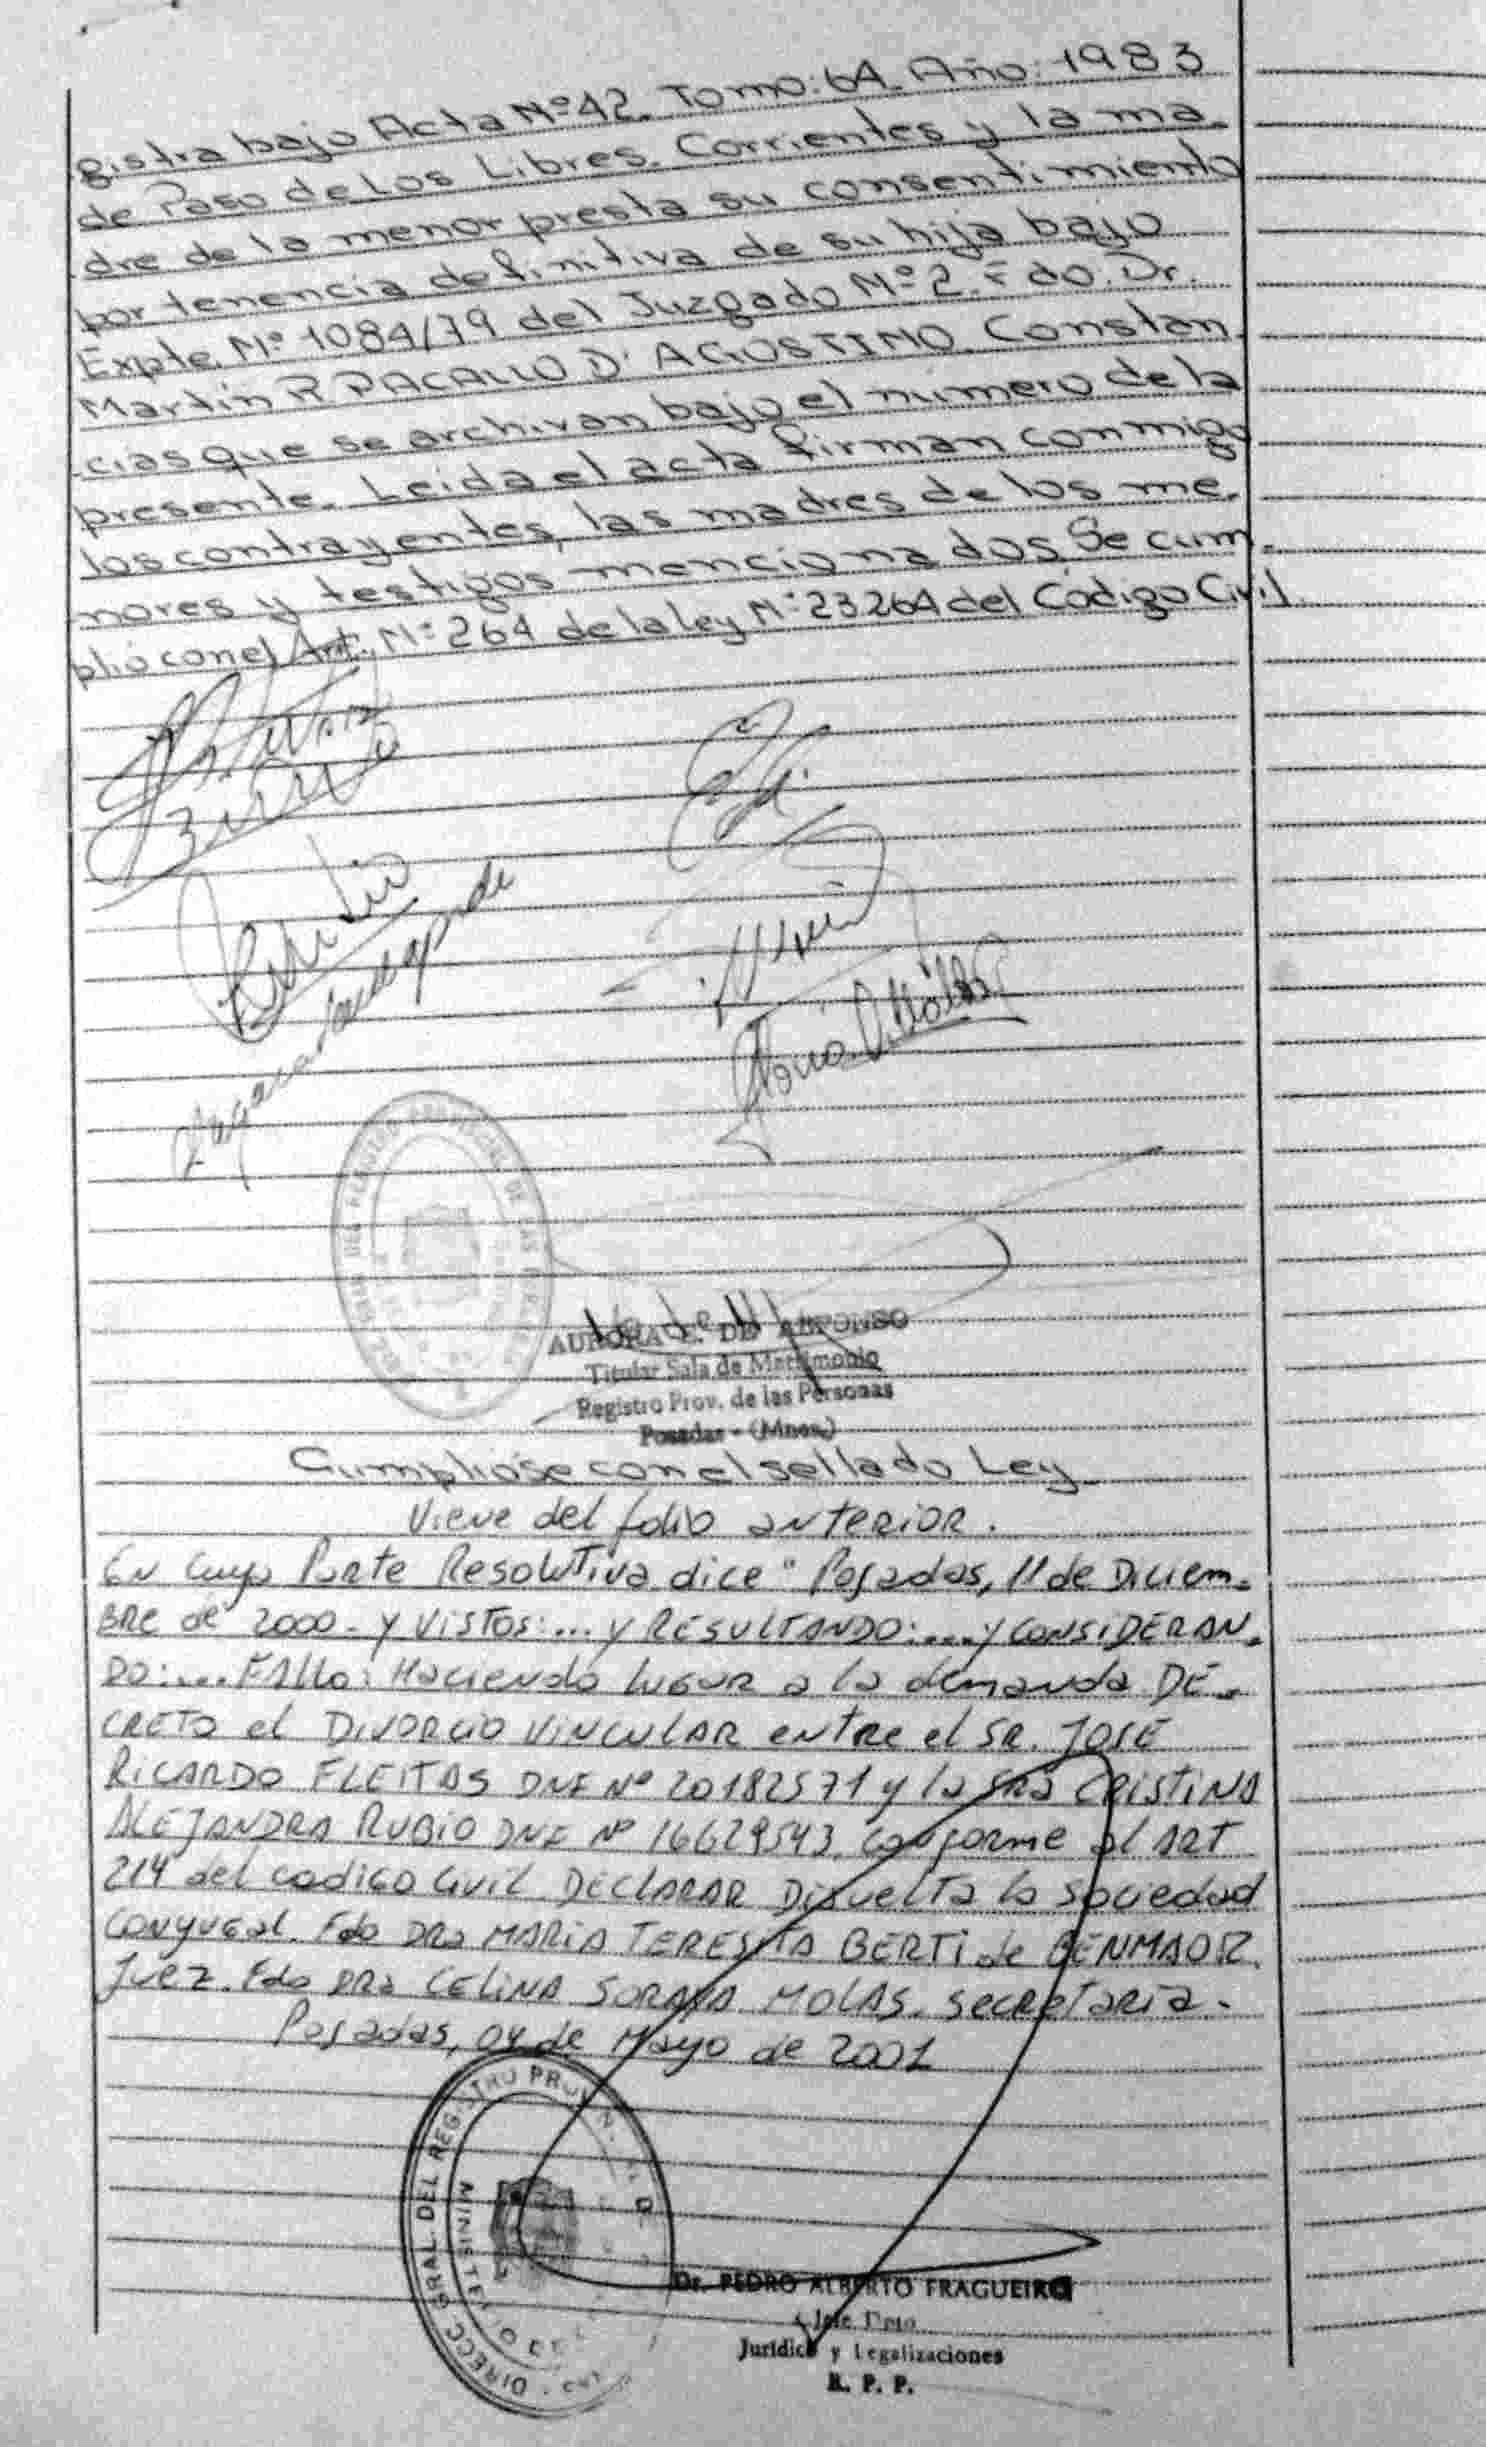 gistra bajo Acta Nº 42. Tomo: 6A. Año: 1983
de Paso de Los Libres. Corrientes y la ma-
dre de la menor presta su consentimiento
por tenencia definitiva de su hija bajo
Expte. Nº 1084/79 del Juzgado Nº 2. Fdo. Dr.
Martín R D'AGOSTINO. Constan
cias que se archivan bajo el numero de la
presente. Leida el acta firman conmigo
los contrayentes, las madres de los me-
nores y testigos mencionados. Se cum-
plió con el Art. Nº 264 de la ley Nº 23264 del Código Civil
AURORA E. DE
Titular Sala de Matrimonio
Registro Prov. de las Personas
Posadas - (Mnes.)
Cumpliose con el sellado Ley
Viene del folio anterior.
En cuya Parte Resolutiva dice "Posadas, 11 de Diciem-
BRE de 2000 - y VISTOS:... y RESULTANDO:... y CONSIDERAN-
DO:... FALLO: Haciendo lugar a la demanda DE-
CRETO el DIVORCIO VINCULAR entre el SR. JOSE
RICARDO FLEITAS DNI Nº 20182571 y la SRA CRISTINA
ALEJANDRA RUBIO DNI Nº 16629543, conforme al ART
214 del codigo Civil. DECLARAR Disuelta la Sociedad
conyugal. Fdo DRA MARIA TERESITA BERTI de BENMAOR.
Juez. Fdo DRA CELINA SORAYA MOLAS. secretaria.
Posadas, 04 de Mayo de 2001
DIRECC GRAL. DEL REGISTRO PROVIN.
MINISTERIO DE
Dr. PEDRO ALBERTO FRAGUEIRO
Jefe Dpto
Jurídico y Legalizaciones
R. P. P.